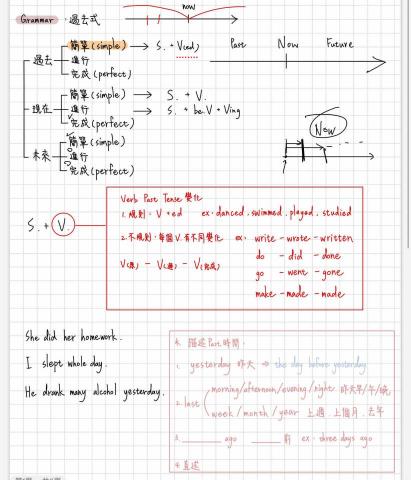 Grammar · 過去式
now
過去
簡單 (simple) → S. + V(ed)
進行
完成 (perfect)
Past Now Future
現在
簡單 (simple) → S. + V.
進行 → S. + be.V + Ving
完成 (perfect)
未來
簡單 (simple)
進行
完成 (perfect)
Now
S. + V.
Verb Past Tense 變化
1. 規則: V + ed ex. danced, swimmed, played, studied
2. 不規則: 每個 V. 有不同變化 ex. write - wrote - written
do - did - done
V(原) - V(過) - V(完成)
go - went - gone
make - made - made
She did her homework.
I slept whole day.
He drank many alcohol yesterday.
描述 Past 時間:
1. yesterday 昨天 ⇒ the day before yesterday
2. last
morning/afternoon/evening/night 昨天早/午/晚
week/month/year 上週.上個月.去年
3. ______ ago ______前 ex. three days ago
4. 直述